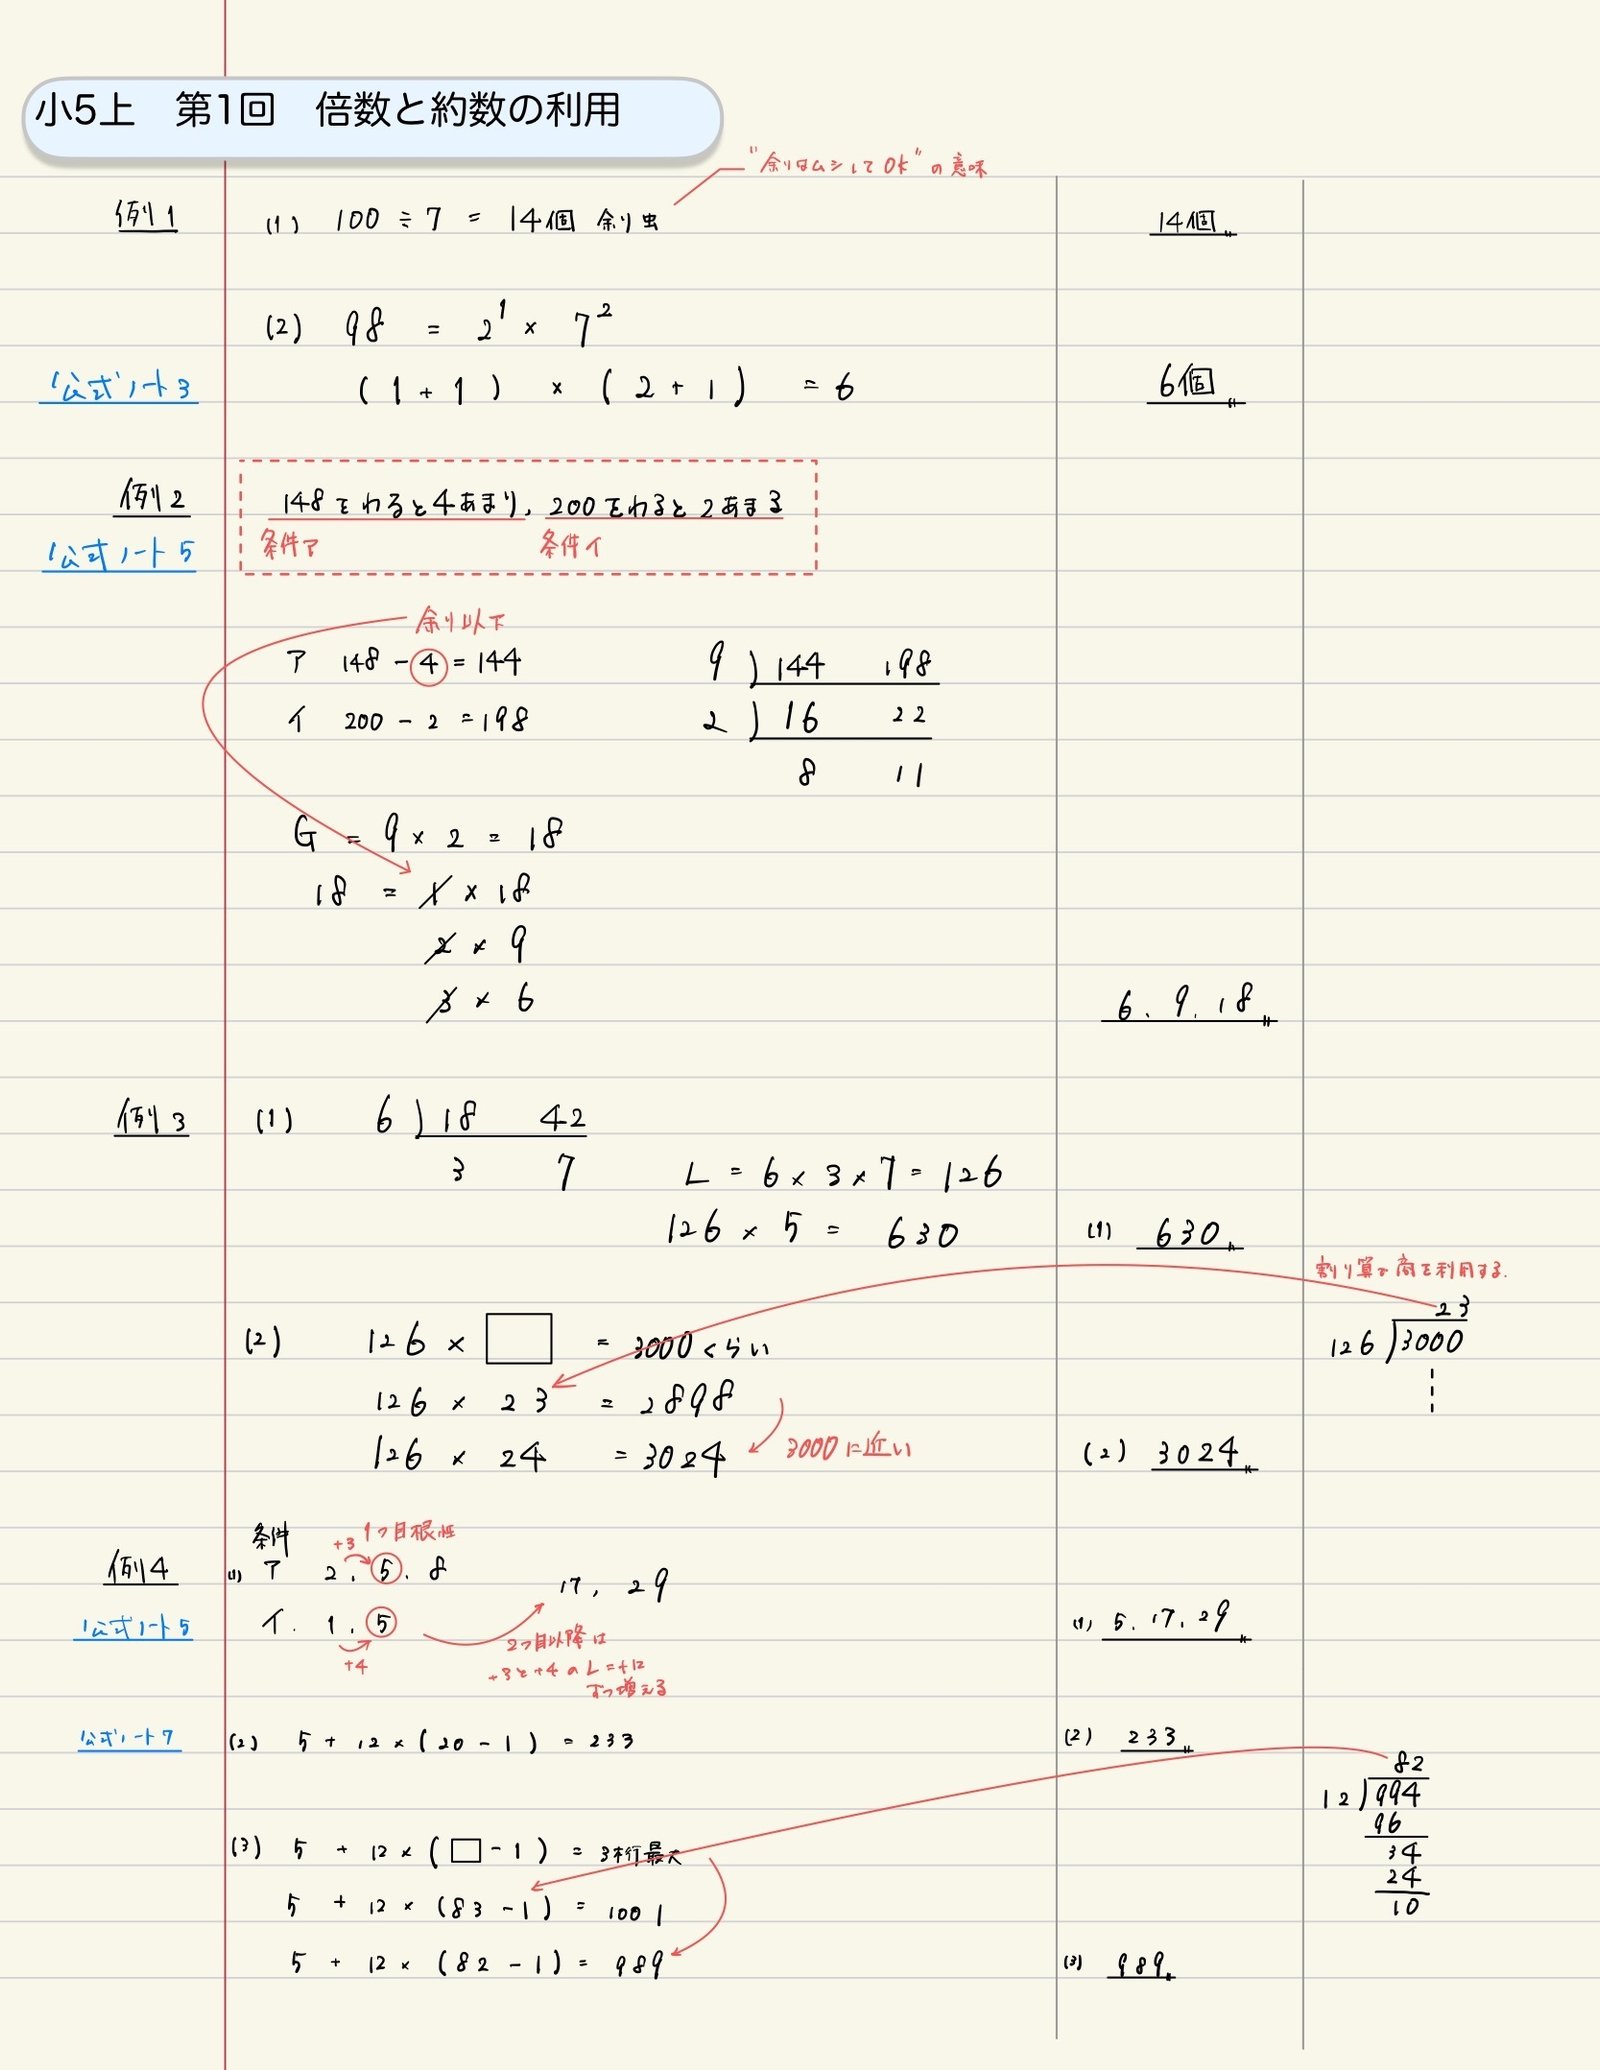 小5上　第1回　倍数と約数の利用
"余りはムシしてOK"の意味
例1 (1) 100÷7 = 14個 余り虫 14個
(2) 98 = 2¹ × 7²
公式ノート3 (1+1) × (2+1) = 6 6個
例2 148をわると4あまり、200をわると2あまる
公式ノート5 条件ア 条件イ
余り以下
ア 148-4=144 9)144 198
イ 200-2=198 2)16 22
8 11
G = 9×2 = 18
18 = 1×18
2×9
3×6 6.9.18
例3 (1) 6)18 42
3 7 L = 6×3×7=126
126×5 = 630 (1) 630
割り算の商を利用する.
23
(2) 126×□ = 3000くらい 126)3000
126×23 = 2898
126×24 = 3024 3000に近い (2) 3024
条件 +3 1つ目根性
例4 (1) ア 2.5.8 17, 29
公式ノート5 イ. 1.5 (1) 5.17.29
+4 2つ目以降は
+3と+4のL=+12
ずつ増える
公式ノート7 (2) 5+12×(20-1) = 233 (2) 233
82
12)994
96
(3) 5+12×(□-1) = 3桁最大 34
24
5+12×(83-1) = 1001 10
5+12×(82-1) = 989 (3) 989